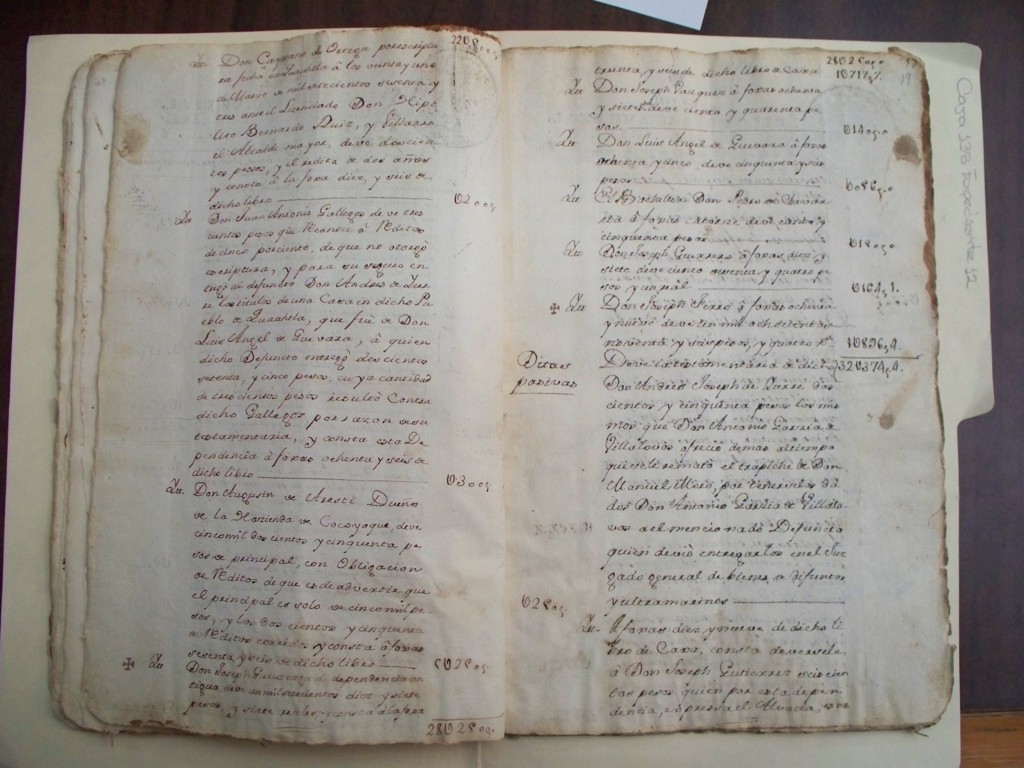 Don Cayetano de Ortega por escriptu
ra fecha en Quauhtla á los veinte y uno
de Marzo de mil setecientos sesenta y
tres ante el Lizenciado Don Hipo
lito Bernardo Ruiz, y Villarro
el Alcalde mayor, deve doscien
tos pesos, y el redito de dos años
y consta á la foxa diez, y seis de
dicho libro
0200 g
Don Juan Antonio Gallegos deve tres
cientos pesos que reconoce á réditos
de cinco porciento, de que no otorgó
escriptura, y para su seguro en
tregó al defuncto Don Andres de
los titulos de una Casa en dicho Pu
eblo de Quauhtla, que fué de Don
Luis Angel de Guevara, á quien
dicho Defuncto entregó doscientos
sesenta, y cinco pesos, cuya cantidad
de trescientos pesos resultó contra
dicho Gallegos por razon de su
testamentaria, y consta esta De
pendencia á foxas ochenta y seis de
dicho libro
0300 g
Don Augustin de Aresti Dueño
de la Hazienda de Cocoyoque deve
cinco mil doscientos y cinquenta pe
sos de principal, con obligacion
de réditos de que es de advertir que
el principal es solo de cinco mil pe
sos, y los doscientos y cinquenta
de réditos corridos y consta á foxas
sesenta y seis de dicho libro
Don Joseph de dependencia an
tigua deve un mil setecientos diez y siete
pesos, y siete reales, y consta á la foxa
treinta, y seis de dicho libro de Caxa
Don Joseph Vazquez á foxas ochenta
y siete deve ciento y quarenta pe
sos
0140 g
Don Luis Angel de Guevara á foxas
ochenta, y cinco deve cinquenta y seis
pesos
Don Pedro de
á foxas catorze deve ciento y
cinquenta pesos
Don Joseph Guerrero á foxas diez y
siete deve ciento sesenta, y quatro pe
sos y un real
0164 g 1.
Don Joseph Ferro á foxas ochenta
y nueve deve un mil ochocientos
noventa y seis pesos, y quatro
Ditas
pasivas
Deve la testamentaria de dicho
Don Andres Joseph de dos
cientos y cinquenta pesos los mis
mos que Don Antonio Garcia de
Villalovos ofreció demas al tiempo
que se le remató el trapiche de Don
Manuel Mero, por haverselos da
do Don Antonio Garcia de Villalo
vos a el mencionado Defuncto
quien devió entregarlos en el Juz
gado general de bienes de difuntos
y ultramarinos
0250 g
A foxas diez y nueve de dicho li
bro de Caxa, consta deversele
á Don Joseph Gutierrez seiscien
tos pesos quien por esta depen
dencia, expressa el Alvacea, 
Caja 138 Expediente 12